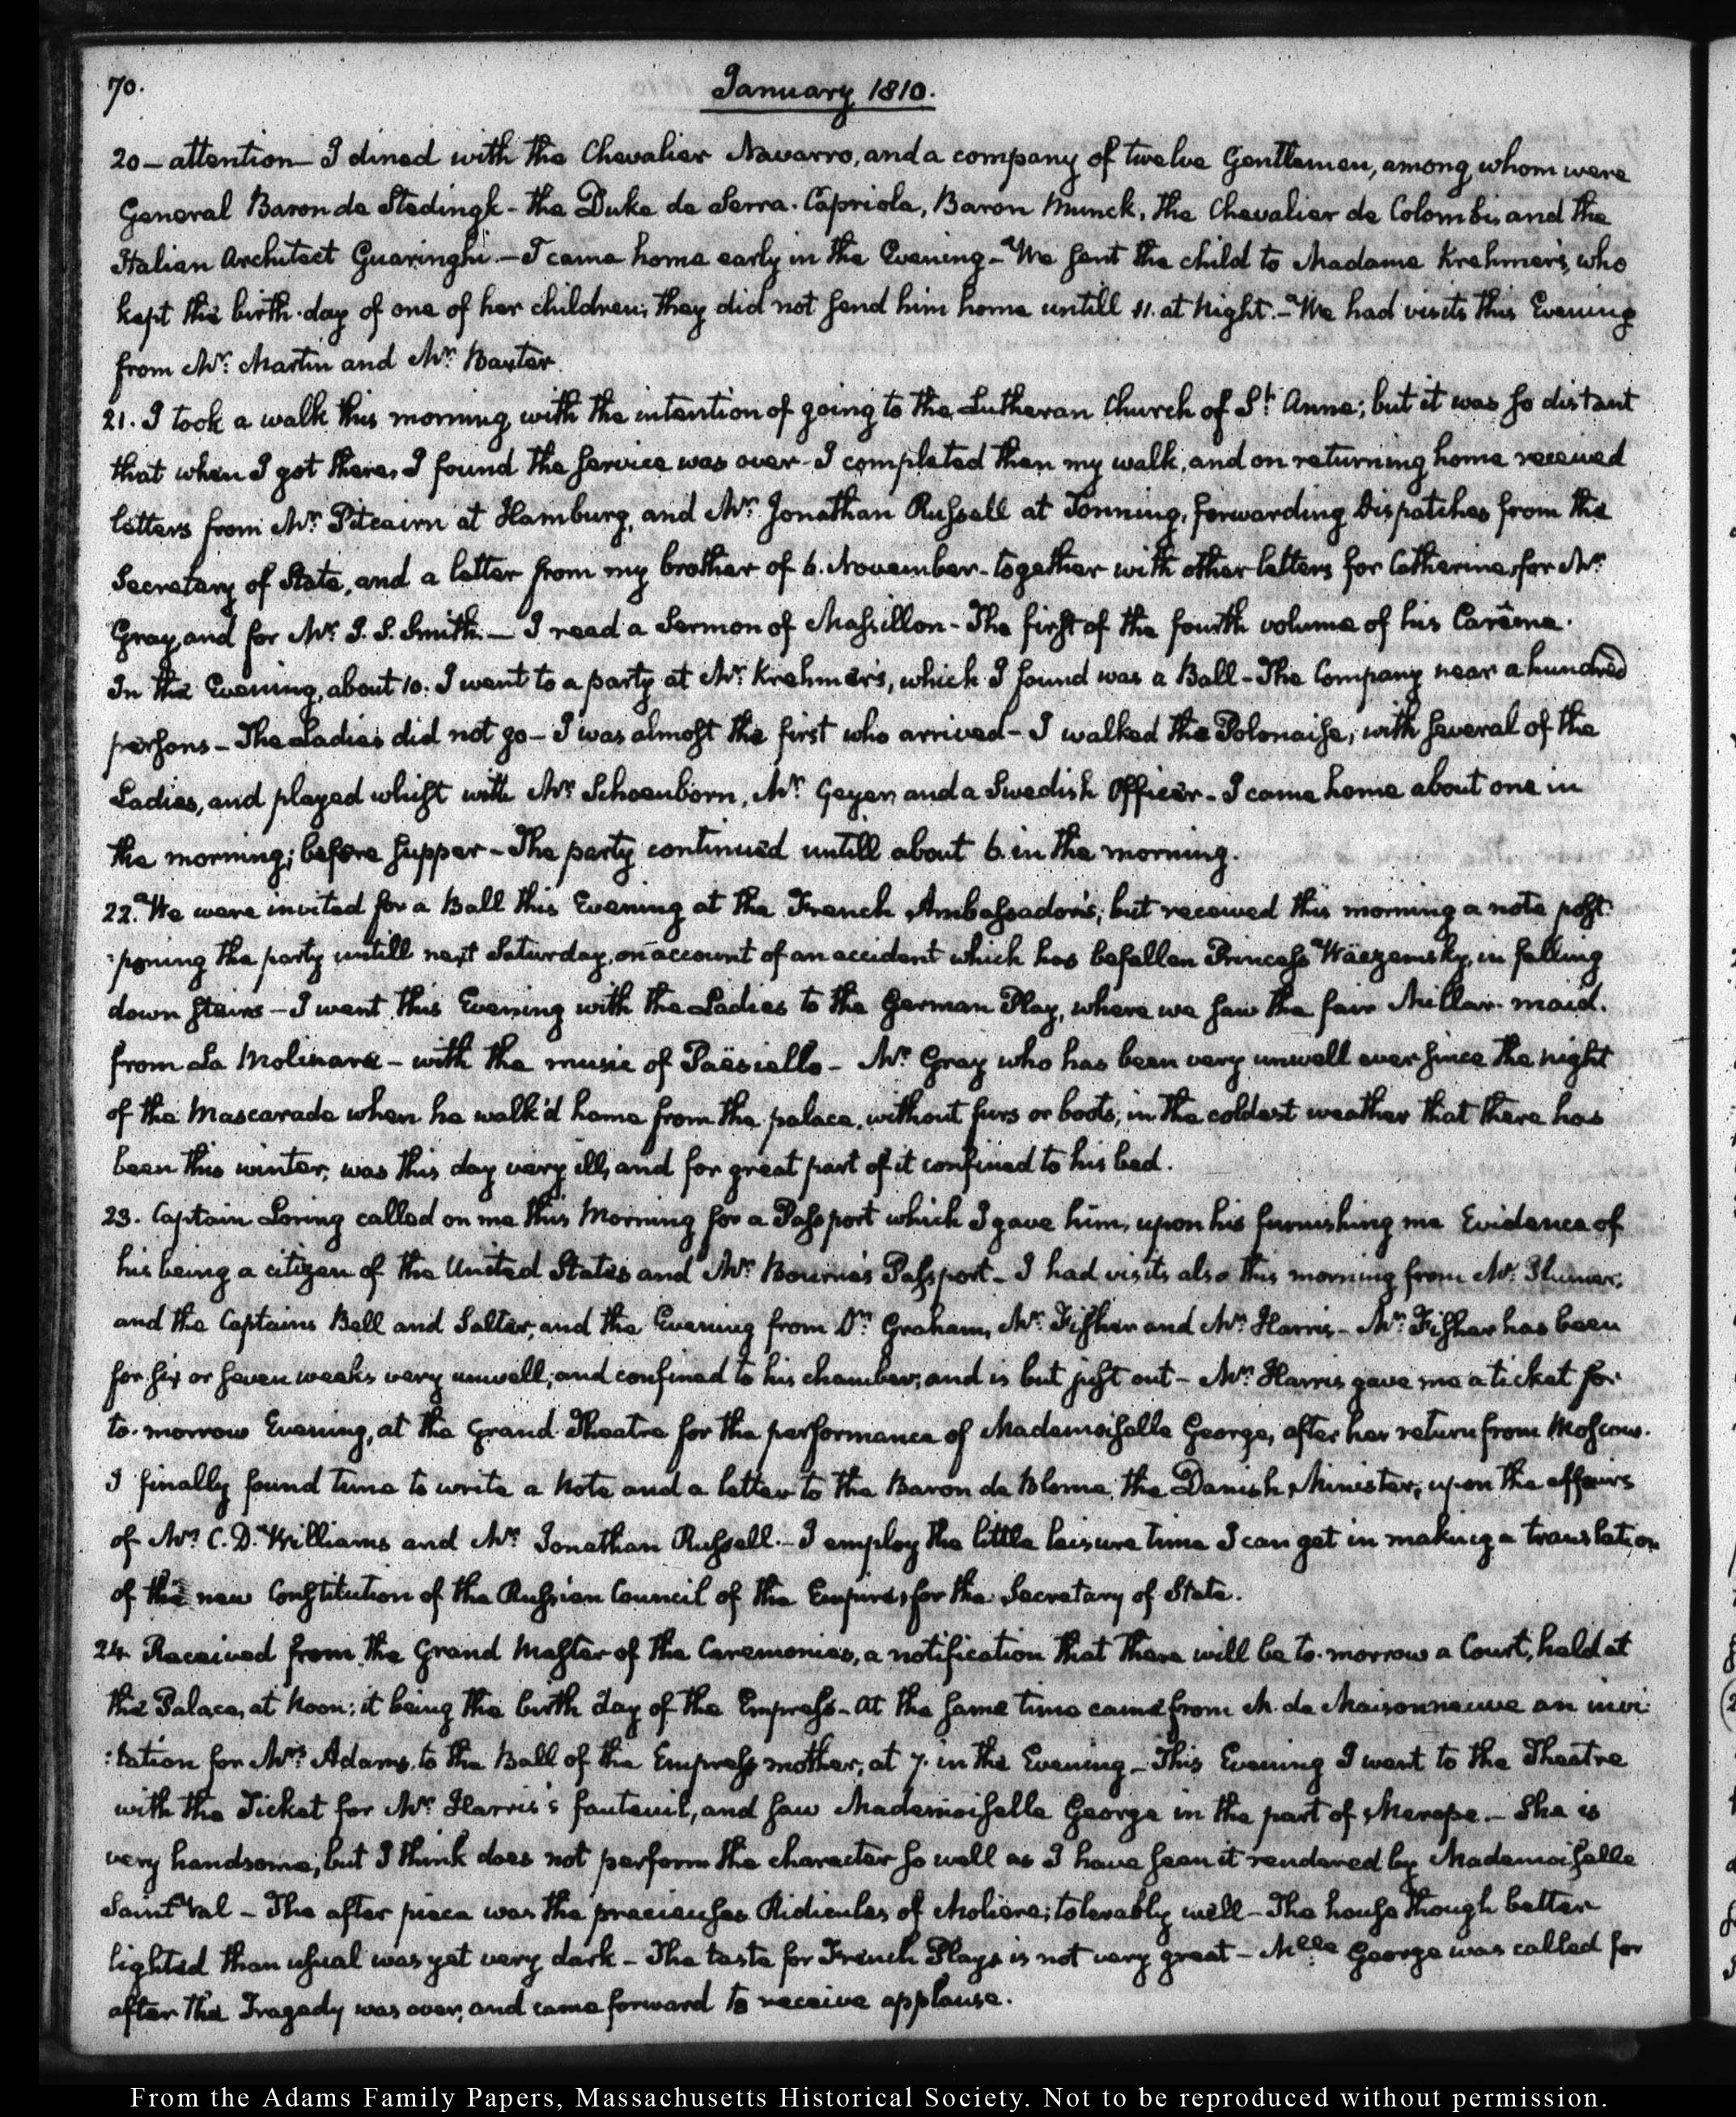 70.
January 1810.
20 – attention – I dined with the Chevalier Navarro, and a company of twelve Gentlemen, among whom were
General Baron de Stedingk – the Duke de Serra-Capriola, Baron Munck, the Chevalier de Colombi, and the
Italian Architect Guaringhi. – I came home early in the Evening – We sent the child to Madame Krehmer's, who
kept the birth-day of one of her children; they did not send him home untill 11. at Night. – We had visits this Evening
from Mr. Martin and Mr. Baxter.
21. I took a walk this morning, with the intention of going to the Lutheran Church of St. Anne; but it was so distant
that when I got there, I found the service was over – I completed then my walk, and on returning home received
letters from Mr. Pitcairn at Hamburg, and Mr. Jonathan Russell at Tonning, forwarding Dispatches from the
Secretary of State, and a letter from my brother of 6. November – together with other letters for Catherine, for Mr.
Gray, and for Mr. J. S. Smith. – I read a Sermon of Massillon – The first of the fourth volume of his Carême.
In the Evening, about 10. I went to a party at Mr. Krehmer's, which I found was a Ball – The Company near a hundred
persons – The Ladies did not go – I was almost the first who arrived – I walked the Polonaise, with several of the
Ladies, and played whist with Mr. Schoenborn, Mr. Geyer and a Swedish Officer – I came home about one in
the morning; before supper – The party continued untill about 6. in the morning.
22. We were invited for a Ball this Evening at the French Ambassador's; but received this morning a note post-
:poning the party untill next Saturday, on account of an accident which has befallen Princess Wäezemsky, in falling
down stairs – I went this Evening with the Ladies to the German Play, where we saw the fair Miller-maid.
from La Molinara – with the music of Paësiello – Mr. Gray who has been very unwell ever since the night
of the Mascarade when he walk'd home from the palace, without furs or boots, in the coldest weather that there has
been this winter, was this day very ill, and for great part of it confined to his bed.
23. Captain Loring called on me this Morning for a Passport which I gave him, upon his furnishing me Evidence of
his being a citizen of the United States and Mr. Bourne's Passport – I had visits also this morning from Mr. Plumer,
and the Captains Bell and Salter, and the Evening from Dr. Graham, Mr. Fisher and Mr. Harris – Mr. Fisher has been
for six or seven weeks very unwell, and confined to his chamber; and is but just out – Mr. Harris gave me a ticket for
to-morrow Evening, at the Grand Theatre for the performance of Mademoiselle George, after her return from Moscow.
I finally found time to write a Note and a letter to the Baron de Blome, the Danish Minister, upon the affairs
of Mr. C. D. Williams and Mr. Jonathan Russell. – I employ the little leisure time I can get in making a translation
of the new Constitution of the Russian Council of the Empire, for the Secretary of State.
24. Received from the Grand Master of the Ceremonies, a notification that there will be to-morrow a Court, held at
the Palace, at Noon; it being the birth day of the Empress – At the same time came from M. de Maisonneuve an invi-
:tation for Mrs. Adams, to the Ball of the Empress mother, at 7. in the Evening – This Evening I went to the Theatre
with the Ticket for Mr. Harris's fauteuil, and saw Mademoiselle George in the part of Merope. – She is
very handsome; but I think does not perform the character so well as I have seen it rendered by Mademoiselle
Saint Val – The after piece was the precieuses Ridicules of Moliere; tolerably well – The house though better
lighted than usual was yet very dark – The taste for French Plays is not very great – Melle George was called for
after the Tragedy was over, and came forward to receive applause.
From the Adams Family Papers, Massachusetts Historical Society. Not to be reproduced without permission.